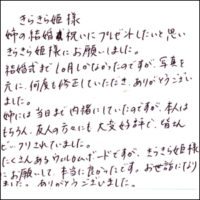 きらきら姫様
姉の結婚祝いにプレゼントしたいと思い
きらきら姫様にお願いしました。
結婚式まで10日しかなかったのですが、写真を
元に、何度も修正していただき、ありがとうござい
ました。
姉には当日まで内緒にしていたのですが、本人は
もちろん、友人の方々にも大変好評で、皆さん
ビックリされていました。
たくさんあるウェルカムボードですが、きらきら姫様
にお願いして、本当に良かったです。お世話になり
ました。ありがとうございました。